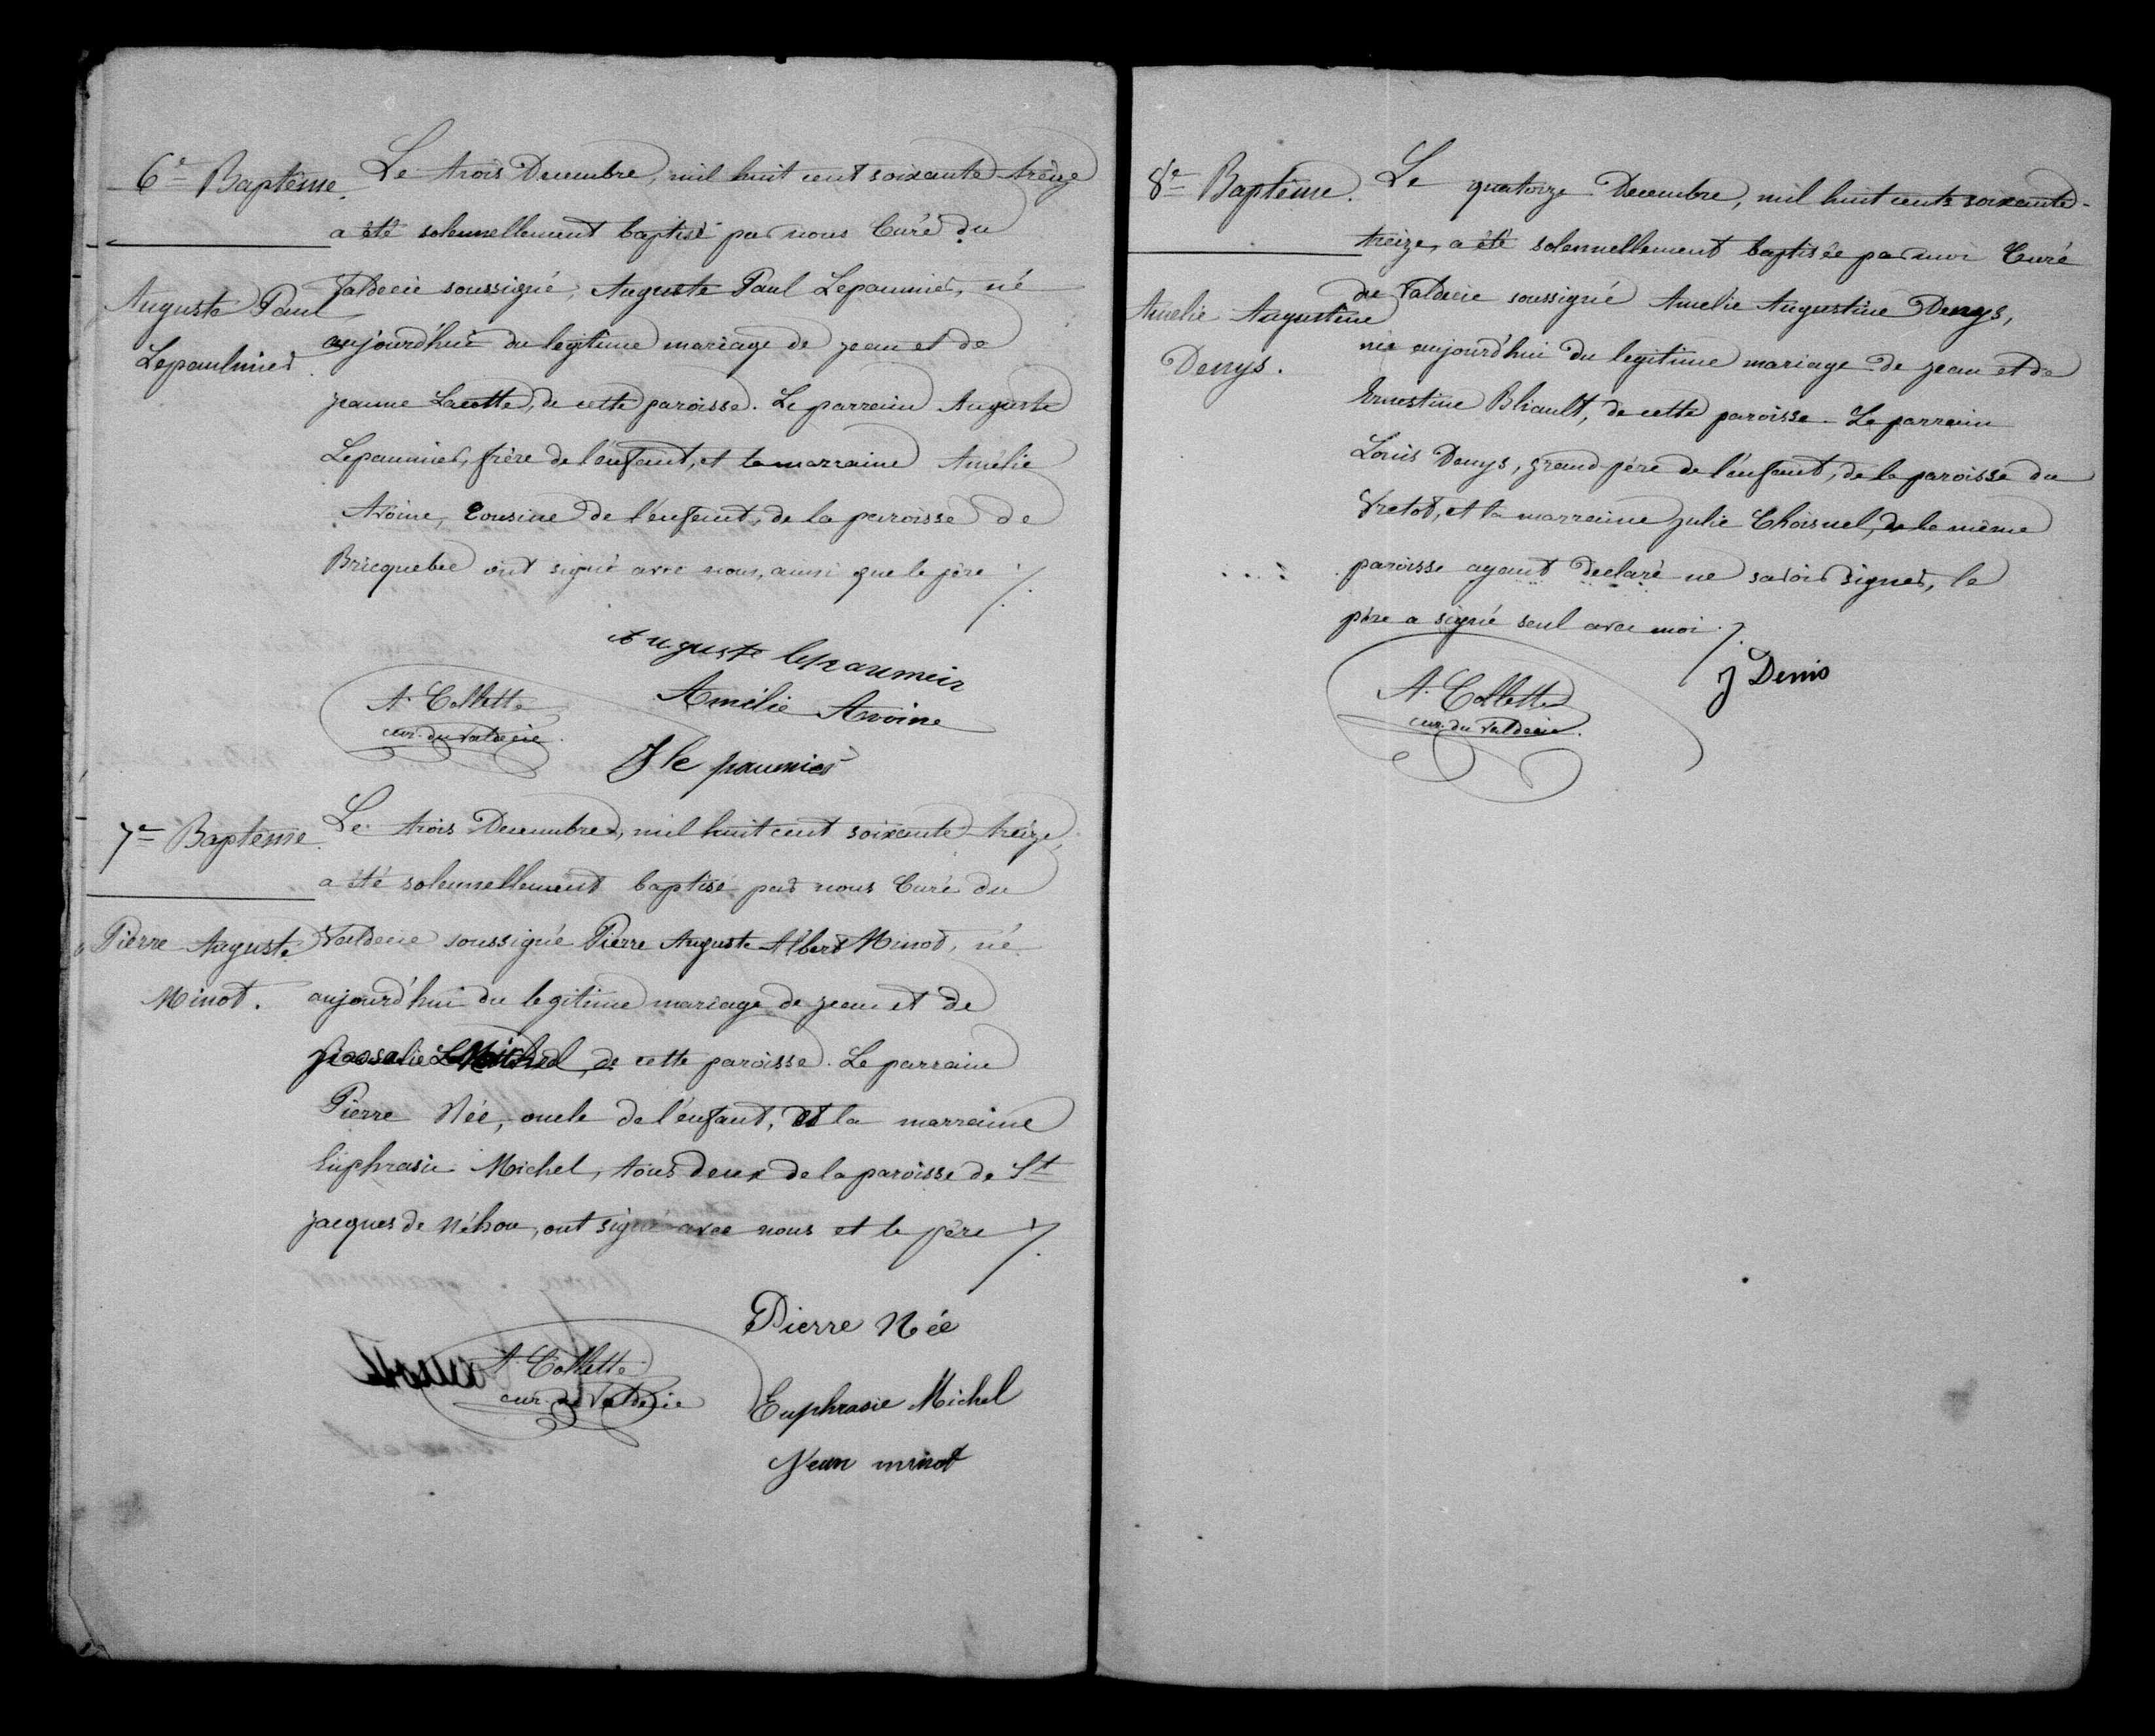 6e Baptême.
Auguste Paul
Lepaulmier.
Le trois Decembre, mil huit cent soixante treize
a été solennellement baptisé par nous Curé du
Valdecie soussigné, Auguste Paul Lepaumier, né
aujourd'hui du legitime mariage de jean et de
jeanne Lacotte, de cette paroisse. Le parrain Auguste
Lepaumier, frère de l'enfant, et la marraine Amélie
Avoine, Cousine de l'enfant, de la paroisse de
Bricquebec ont signé avec nous, aussi que le père ./.
Auguste lepaumeir
Amélie Avoine
A. Collette
cur. du Valdecie.
J le paumier
7e Baptême.
Pierre Auguste
Minot.
Le trois Decembre, mil huit cent soixante treize,
a été solennellement baptisé par nous Curé du
Valdecie soussigné Pierre Auguste Albert Minot, né
aujourd'hui du legitime mariage de jean et de
Michel, de cette paroisse. Le parrain
Pierre Née, oncle de l'enfant, et la marraine
Euphrasie Michel, tous deux de la paroisse de St
jacques de Néhou, ont signé avec nous et le père ./.
Pierre Née
A. Collette
cur. du Valdecie
Euphrasie Michel
Jean minot
8e Baptême.
Amelie Augustine
Denys.
Le quatorze Decembre, mil huit cent soixante-
treize, a été solennellement baptisée par moi Curé
du Valdecie soussigné Amelie Augustine Denys,
née aujourd'hui du legitime mariage de jean et de
Ernestine Bliault, de cette paroisse. Le parrain
Louis Denys, grand-père de l'enfant, de la paroisse du
Vretot, et la marraine julie Choisnel, de la même
paroisse ayant declaré ne savoir signer, le
père a signé seul avec moi ./.
J Denis
A. Collette
cur. du Valdecie.